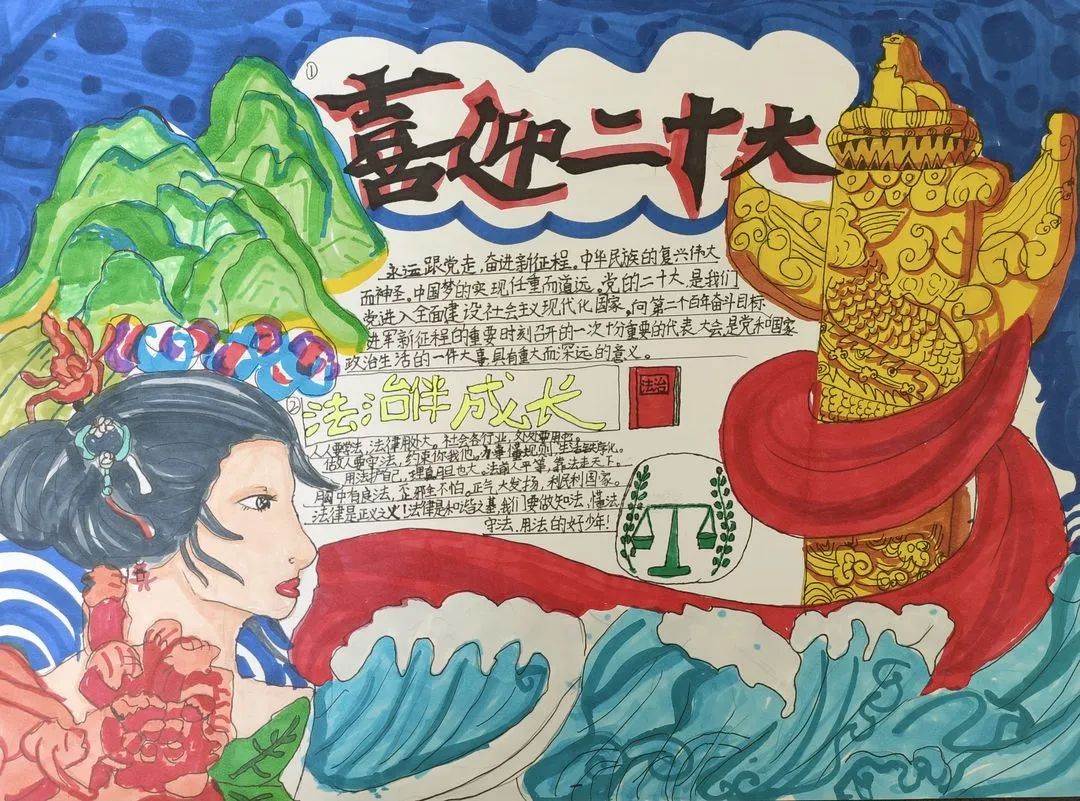 ①
喜迎二十大
永远跟党走，奋进新征程。中华民族的复兴伟大
而神圣，中国梦的实现任重而道远。党的二十大是我们
党进入全面建设社会主义现代化国家，向第二个百年奋斗目标
进军新征程的重要时刻召开的一次十分重要的代表大会，是党和国家
政治生活的一件大喜，具有重大而深远的意义。
②
法治伴成长
法治
人人要学法，法律服务大。社会各行业，处处要用它。
做人要守法，约束你我他。办事懂规则，生活
用法护自己，理直胆也大。法前人平等，靠法走天下。
胸中有良法，歪邪全不怕。正气大发扬，利民利国家。
法律是正义之！法律是和谐之基，我们要做知法，懂法，
守法，用法的好少年！